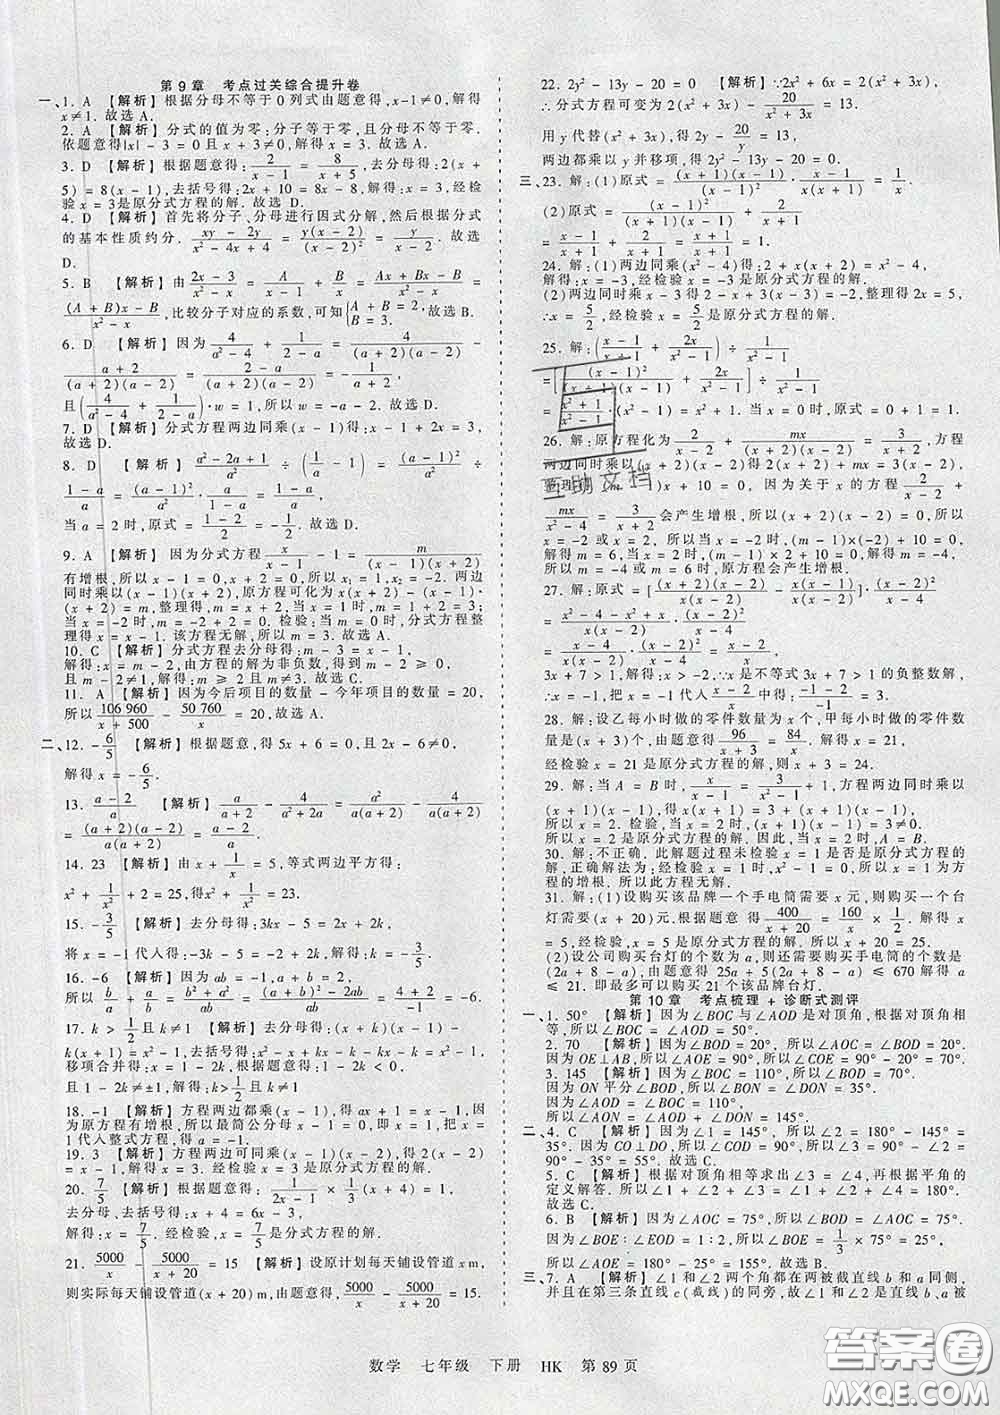 第9章 考点过关综合提升卷
一、1. A 【解析】根据分母不等于0列式由题意得,x-1≠0,解得
x≠1. 故选A.
2. A 【解析】分式的值为零:分子等于零,且分母不等于零.
依题意得|x|-3=0且x-3≠0,解得x=-3. 故选A.
3. D 【解析】根据题意得:2/(x-1)=8/(x+5),去分母得:2(x
+5)=8(x-1),去括号得:2x+10=8x-8,解得:x=3,经检
验x=3是原分式方程的解. 故选D.
4. D 【解析】首先将分子、分母进行因式分解,然后根据分式
的基本性质约分. (xy-2y)/(x²-4x+4)=y(x-2)/(x-2)²=y/(x-2). 故选
D.
5. B 【解析】由(2x-3)/(x²-x)=A/(x-1)+B/x=(Ax+Bx-B)/(x²-x)=
((A+B)x-B)/(x²-x),比较分子对应的系数,可知{A+B=2, B=3. 故选B.
6. D 【解析】因为4/(a²-4)+1/(2-a)=4/((a+2)(a-2))-
(a+2)/((a+2)(a-2))=(2-a)/((a+2)(a-2))=-1/(a+2),
且(4/(a²-4)+1/(2-a))·w=1,所以w=-a-2. 故选D.
7. D 【解析】分式方程两边同乘(x-1)得:1-x+2x=3.
故选D.
8. D 【解析】(a²-2a+1)/a²÷(1/a-1)=(a-1)²/a²÷
(1-a)/a=(a-1)²/a²·a/(1-a)=(1-a)/a,
当a=2时,原式=(1-2)/2=-1/2. 故选D.
9. A 【解析】因为分式方程x/(x-1)-1=m/((x-1)(x+2))
有增根,所以x-1=0,x+2=0,所以x₁=1,x₂=-2. 两边
同时乘以(x-1)(x+2),原方程可化为x(x+2)-(x-1)·
(x+2)=m,整理得,m=x+2,当x=1时,m=1+2=3;
当x=-2时,m=-2+2=0. 检验:当m=0时,分式方程整
理得x=x-1. 该方程无解,所以m=3. 故选A.
10. C 【解析】分式方程去分母得:m-1=x-1,
解得:x=m-2,由方程的解为非负数,得到m-2≥0,
且m-2≠1,解得:m≥2且m≠3. 故选C.
11. A 【解析】因为今后项目的数量-今年项目的数量=20,
所以106 960/(x+500)-50 760/x=20,故选A.
二、12. -6/5 【解析】根据题意,得5x+6=0,且x²+4≠0,
解得x=-6/5.
13. (a-2)/a 【解析】a/(a+2)-4/(a²+2a)=a²/(a(a+2))-4/(a(a+2))
=(a+2)(a-2)/(a(a+2))=(a-2)/a.
14. 23 【解析】由x+1/x=5,等式两边平方得:
x²+1/x²+2=25,所以x²+1/x²=23.
15. -3/5 【解析】去分母得:3kx-5=2x+2k,
将x=-1代入得:-3k-5=-2+2k,解得:k=-3/5.
16. -6 【解析】因为ab=-1,a+b=2,
所以b/a+a/b=(b²+a²)/ab=((a+b)²-2ab)/ab=(4+2)/(-1)=-6.
17. k>1/2且k≠1 【解析】去分母得:k(x-1)+(x+k)(x+1)
-k(x+1)=x²-1,去括号得:x²+x-kx+kx-k-k=x²-1,
移项合并得:x=1-2k,根据题意得:1-2k<0,
且1-2k≠±1,解得:k>1/2且k≠1.
18. -1 【解析】方程两边都乘(x-1),得ax+1=x-1,因
为原方程有增根,所以最简公分母x-1=0,即增根为x=1,把x=
1代入整式方程,得a=-1.
19. 3 【解析】方程两边可同乘x(x-2),得2(x-2)
-(8-x)=-x,去括号得2x-4-8+x=-x,解得x=3.
20. 7/5 【解析】根据题意得:1/(2x-1)×1/3(x+4)=1,
去分母、去括号得:x+4=6x-3,
解得:x=7/5. 经检验,x=7/5是分式方程的解.
21. 5000/x-5000/(x+20)=15 【解析】设原计划每天铺设管道x m,
则实际每天铺设管道(x+20)m,由题意得5000/x-5000/(x+20)=15.
22. 2y²-13y-20=0 【解析】2x²+6x=2(x²+3x),
∴分式方程可变为2(x²+3x)-20/(x²+3x)=13.
用y代替(x²+3x),得2y-20/y=13,
两边都乘以y并移项,得2y²-13y-20=0.
三、23. 解:(1)原式=(x+1)(x-1)/(x-1)²·(x-1)/(x(x+1))=1/x.
(2)原式=(x-1)²/((x+1)(x-1))+2/(x+1)
=(x-1)/(x+1)+2/(x+1)=(x+1)/(x+1)=1.
24. 解:(1)两边同乘(x²-4)得:2+x(x+2)=x²-4,
解得:x=-3,经检验x=-3是原分式方程的解.
(2)两边同时乘x-3得2-x+3(x-3)=-2,整理得2x=5,
∴x=5/2,经检验x=5/2是原分式方程的解.
25. 解:((x-1)/(x+1)+2x/(x²-1))÷1/(x²-1)
=[(x-1)²/((x+1)(x-1))+2x/((x+1)(x-1))]÷1/(x²-1)
=(x²+1)/(x²-1)·(x²-1)=x²+1. 当x=0时,原式=0+1=1.
26. 解:原方程化为2/(x-2)+mx/((x+2)(x-2))=3/(x+2),方程
两边同时乘以(x+2)(x-2)得2(x+2)+mx=3(x-2),
整理得(m-1)x+10=0,因为关于x的方程2/(x-2)+
mx/(x²-4)=3/(x+2)会产生增根,所以(x+2)(x-2)=0,所以x
=-2或x=2,所以当x=-2时,(m-1)×(-2)+10=0,
解得m=6,当x=2时,(m-1)×2+10=0,解得m=-4,
所以m=-4或m=6时,原方程会产生增根.
27. 解:原式=[(x+2)(x-2)/(x(x-2))-x(x-2)... ]·(x-2)²/(x-4)
3x+7>1,解得:x>-2,∵x是不等式3x+7>1的负整数解,
∴x=-1,把x=-1代入(x-2)/x中得:(-1-2)/(-1)=3.
28. 解:设乙每小时做的零件数量为x个,甲每小时做的零件数
量是(x+3)个,由题意得96/(x+3)=84/x. 解得x=21,
经检验x=21是原分式方程的解,则x+3=24.
29. 解:当A=B时,x/(x-1)=3/(x²-1)+1,方程两边同时乘以
(x+1)(x-1),得x(x+1)=3+(x+1)(x-1),
所以x=2. 检验,当x=2时,(x-1)(x+1)=3≠0,
所以x=2是原分式方程的解. 因此,当x=2时,A=B.
30. 解:不正确. 此解题过程未检验x=1是否是原分式方程的
解,正确解法为:经检验:当x=1时,x-1=0,x=1是分式方
程的增根. 所以此方程无解.
31. 解:(1)设购买该品牌一个手电筒需要x元,则购买一个台
灯需要(x+20)元. 根据题意得400/(x+20)=160/x×1/2. 解得x
=5,经检验,x=5是原分式方程的解. 所以x+20=25.
(2)设公司购买台灯的个数为a,则还需要购买手电筒的个数为
(2a+8-a),由题意得25a+5(2a+8-a)≤670解得a
≤21. 即最多可以购买21个该品牌台灯.
第10章 考点梳理+诊断式测评
一、1. 50° 【解析】因为∠BOC与∠AOD是对顶角,对顶角相
等,所以∠BOC=∠AOD=50°.
2. 70 【解析】因为∠BOD=20°,所以∠AOC=∠BOD=20°.
因为OE⊥AB,所以∠AOE=90°,所以∠COE=90°-20°=70°.
3. 145 【解析】因为∠BOC=110°,所以∠BOD=70°.
因为ON平分∠BOD,所以∠BON=∠DON=35°.
因为∠AOD=∠BOC=110°,
所以∠AON=∠AOD+∠DON=145°.
二、4. C 【解析】因为∠1=145°,所以∠2=180°-145°=
35°. 因为CO⊥DO,所以∠COD=90°,所以∠3=90°-∠2=
90°-35°=55°. 故选C.
5. C 【解析】根据对顶角相等求出∠3=∠4,再根据平角的
定义解答. 所以∠1+∠2+∠3=∠1+∠2+∠4=180°.
故选C.
6. B 【解析】因为∠AOC=75°,所以∠BOD=∠AOC=75°.
因为∠BOE:∠EOD=1:2,所以∠BOE=1/3×75°=25°,
所以∠AOE=180°-25°=155°. 故选B.
三、7. A 【解析】∠1和∠2两个角都在两被截直线b和a同侧,
并且在第三条直线c(截线)的同旁,故∠1和∠2是直线b、a被
互助文档
数学 七年级 下册 HK 第89页
答案圈
MXQE.COM